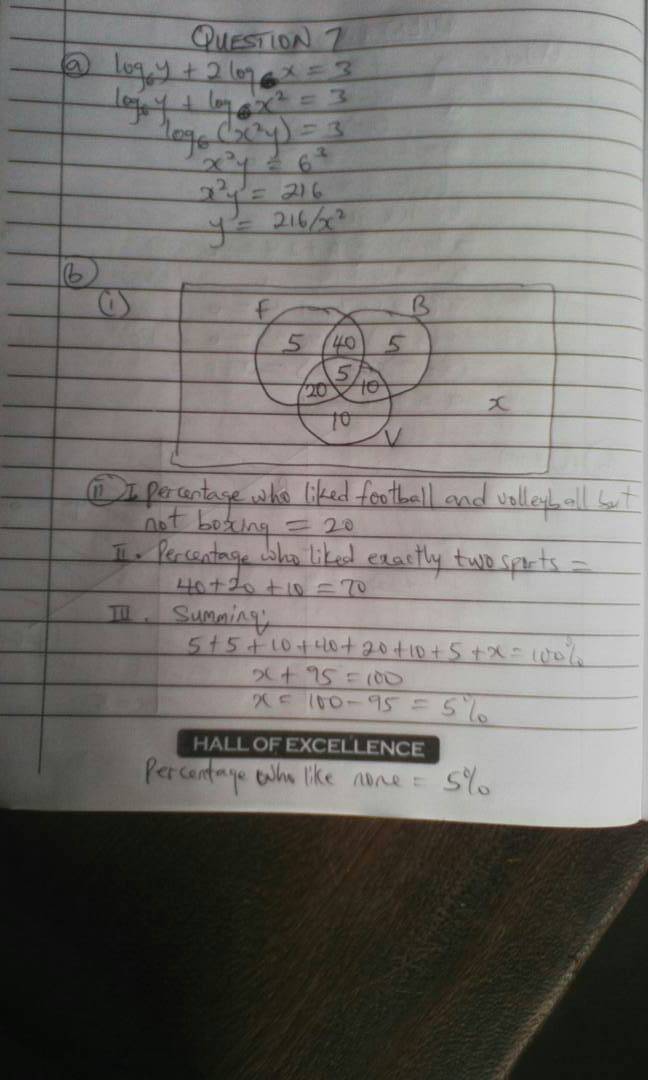 QUESTION 7
(a) log₆y + 2log₆x = 3
log₆y + log₆x² = 3
log₆(x²y) = 3
x²y = 6³
x²y = 216
y = 216/x²
(b)
(i)
F B
5 40 5
5
20 10
10 x
V
(ii) I. Percentage who liked football and volleyball but
not boxing = 20
II. Percentage who liked exactly two sports =
40+20+10 = 70
III. Summing;
5+5+10+40+20+10+5+x = 100%
x + 95 = 100
x = 100 - 95 = 5%
HALL OF EXCELLENCE
Percentage who like none = 5%